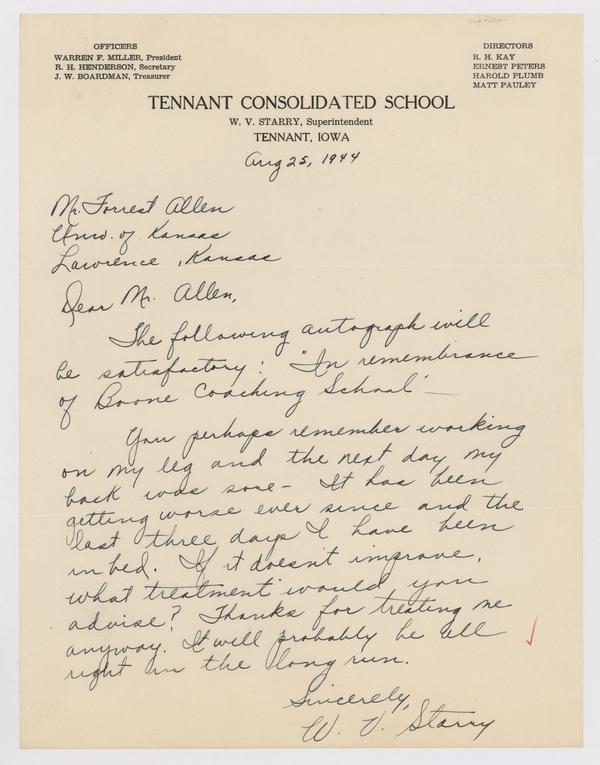 OFFICERS
WARREN F. MILLER, President
R. H. HENDERSON, Secretary
J. W. BOARDMAN, Treasurer
DIRECTORS
R. H. KAY
ERNEST PETERS
HAROLD PLUMB
MATT PAULEY
TENNANT CONSOLIDATED SCHOOL
W. V. STARRY, Superintendent
TENNANT, IOWA
Aug 25, 1944
Mr. Forrest Allen
Univ. of Kansas
Lawrence, Kansas
Dear Mr. Allen,
The following autograph will
be satisfactory: "In remembrance
of Boone Coaching School" —
You perhaps remember working
on my leg and the next day my
back was sore - It has been
getting worse ever since and the
last three days I have been
in bed. If it doesn't improve,
what treatment would you
advise? Thanks for treating me
anyway. It will probably be all
right in the long run.
Sincerely,
W. V. Starry